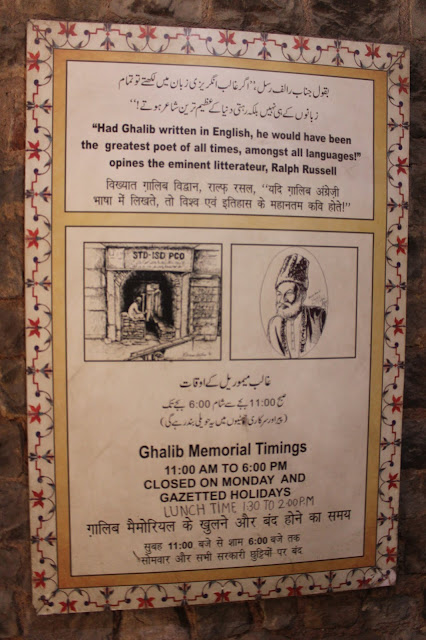 بقول جناب رالف رسل، ’’اگر غالب انگریزی زبان میں لکھتے تو تمام
زبانوں کے ہی نہیں بلکہ رہتی دنیا کے عظیم ترین شاعر ہوتے!‘‘
“Had Ghalib written in English, he would have been
the greatest poet of all times, amongst all languages!”
opines the eminent litterateur, Ralph Russell
विख्यात ग़ालिब विद्वान, राल्फ़ रसल, “यदि ग़ालिब अंग्रेज़ी
भाषा में लिखते, तो विश्व एवं इतिहास के महानतम कवि होते!”
STD-ISD PCO
غالب میموریل کے اوقات
صبح 11:00 بجے سے شام 6:00 بجے تک
(پیر اور سرکاری تعطیلوں میں یہ حویلی بند رہے گی)
Ghalib Memorial Timings
11:00 AM TO 6:00 PM
CLOSED ON MONDAY AND
GAZETTED HOLIDAYS
LUNCH TIME 1:30 TO 2:00 P.M
ग़ालिब मैमोरियल के खुलने और बंद होने का समय
सुबह 11:00 बजे से शाम 6:00 बजे तक
सोमवार और सभी सरकारी छुट्टियों पर बंद